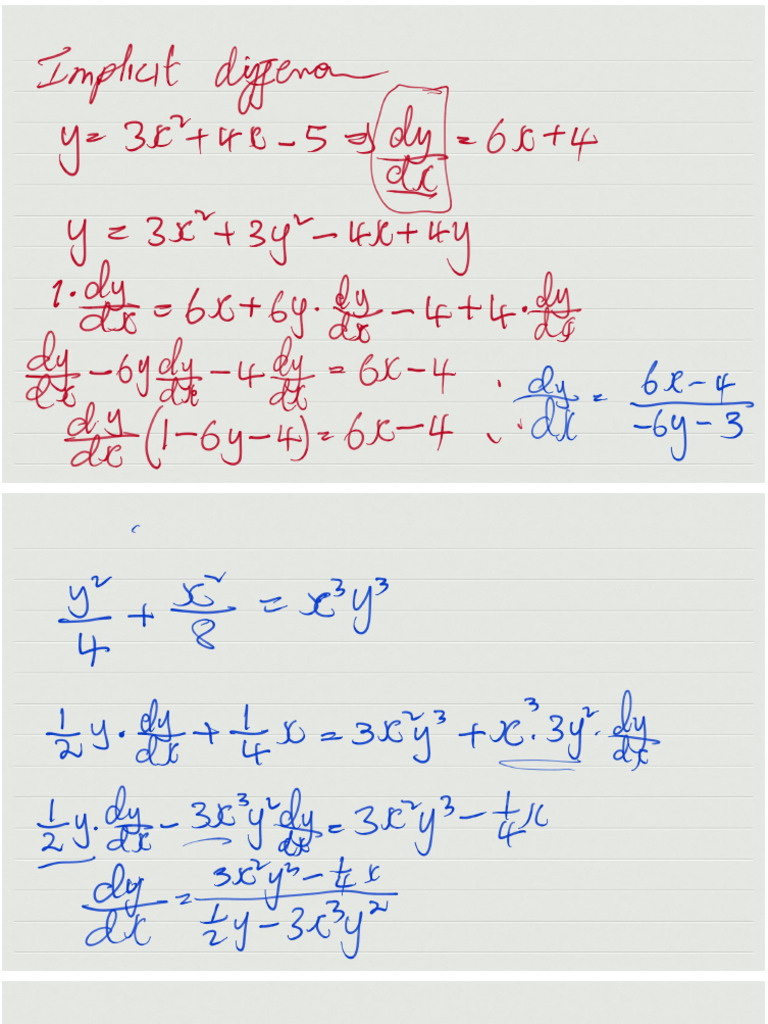 Implicit
y = 3x² + 4x - 5 ⇒ dy/dx = 6x + 4
y = 3x² + 3y² - 4x + 4y
1 · dy/dx = 6x + 6y · dy/dx - 4 + 4 · dy/dx
dy/dx - 6y dy/dx - 4 dy/dx = 6x - 4
dy/dx (1 - 6y - 4) = 6x - 4 ∴ dy/dx = (6x - 4)/(-6y - 3)
y²/4 + x²/8 = x³y³
1/2 y · dy/dx + 1/4 x = 3x²y³ + x³ · 3y² · dy/dx
1/2 y · dy/dx - 3x³y² dy/dx = 3x²y³ - 1/4 x
dy/dx = (3x²y³ - 1/4 x)/(1/2 y - 3x³y²)